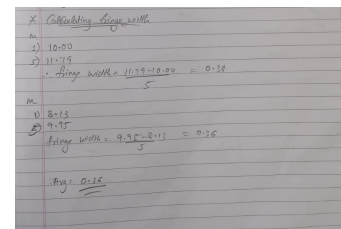 * Calculating fringe width
m
1) 10.00
5) 11.79
∴ fringe width = 11.79-10.00 / 5 = 0.36
m
1) 8.13
5) 9.95
fringe width = 9.95-8.13 / 5 = 0.36
Avg = 0.36